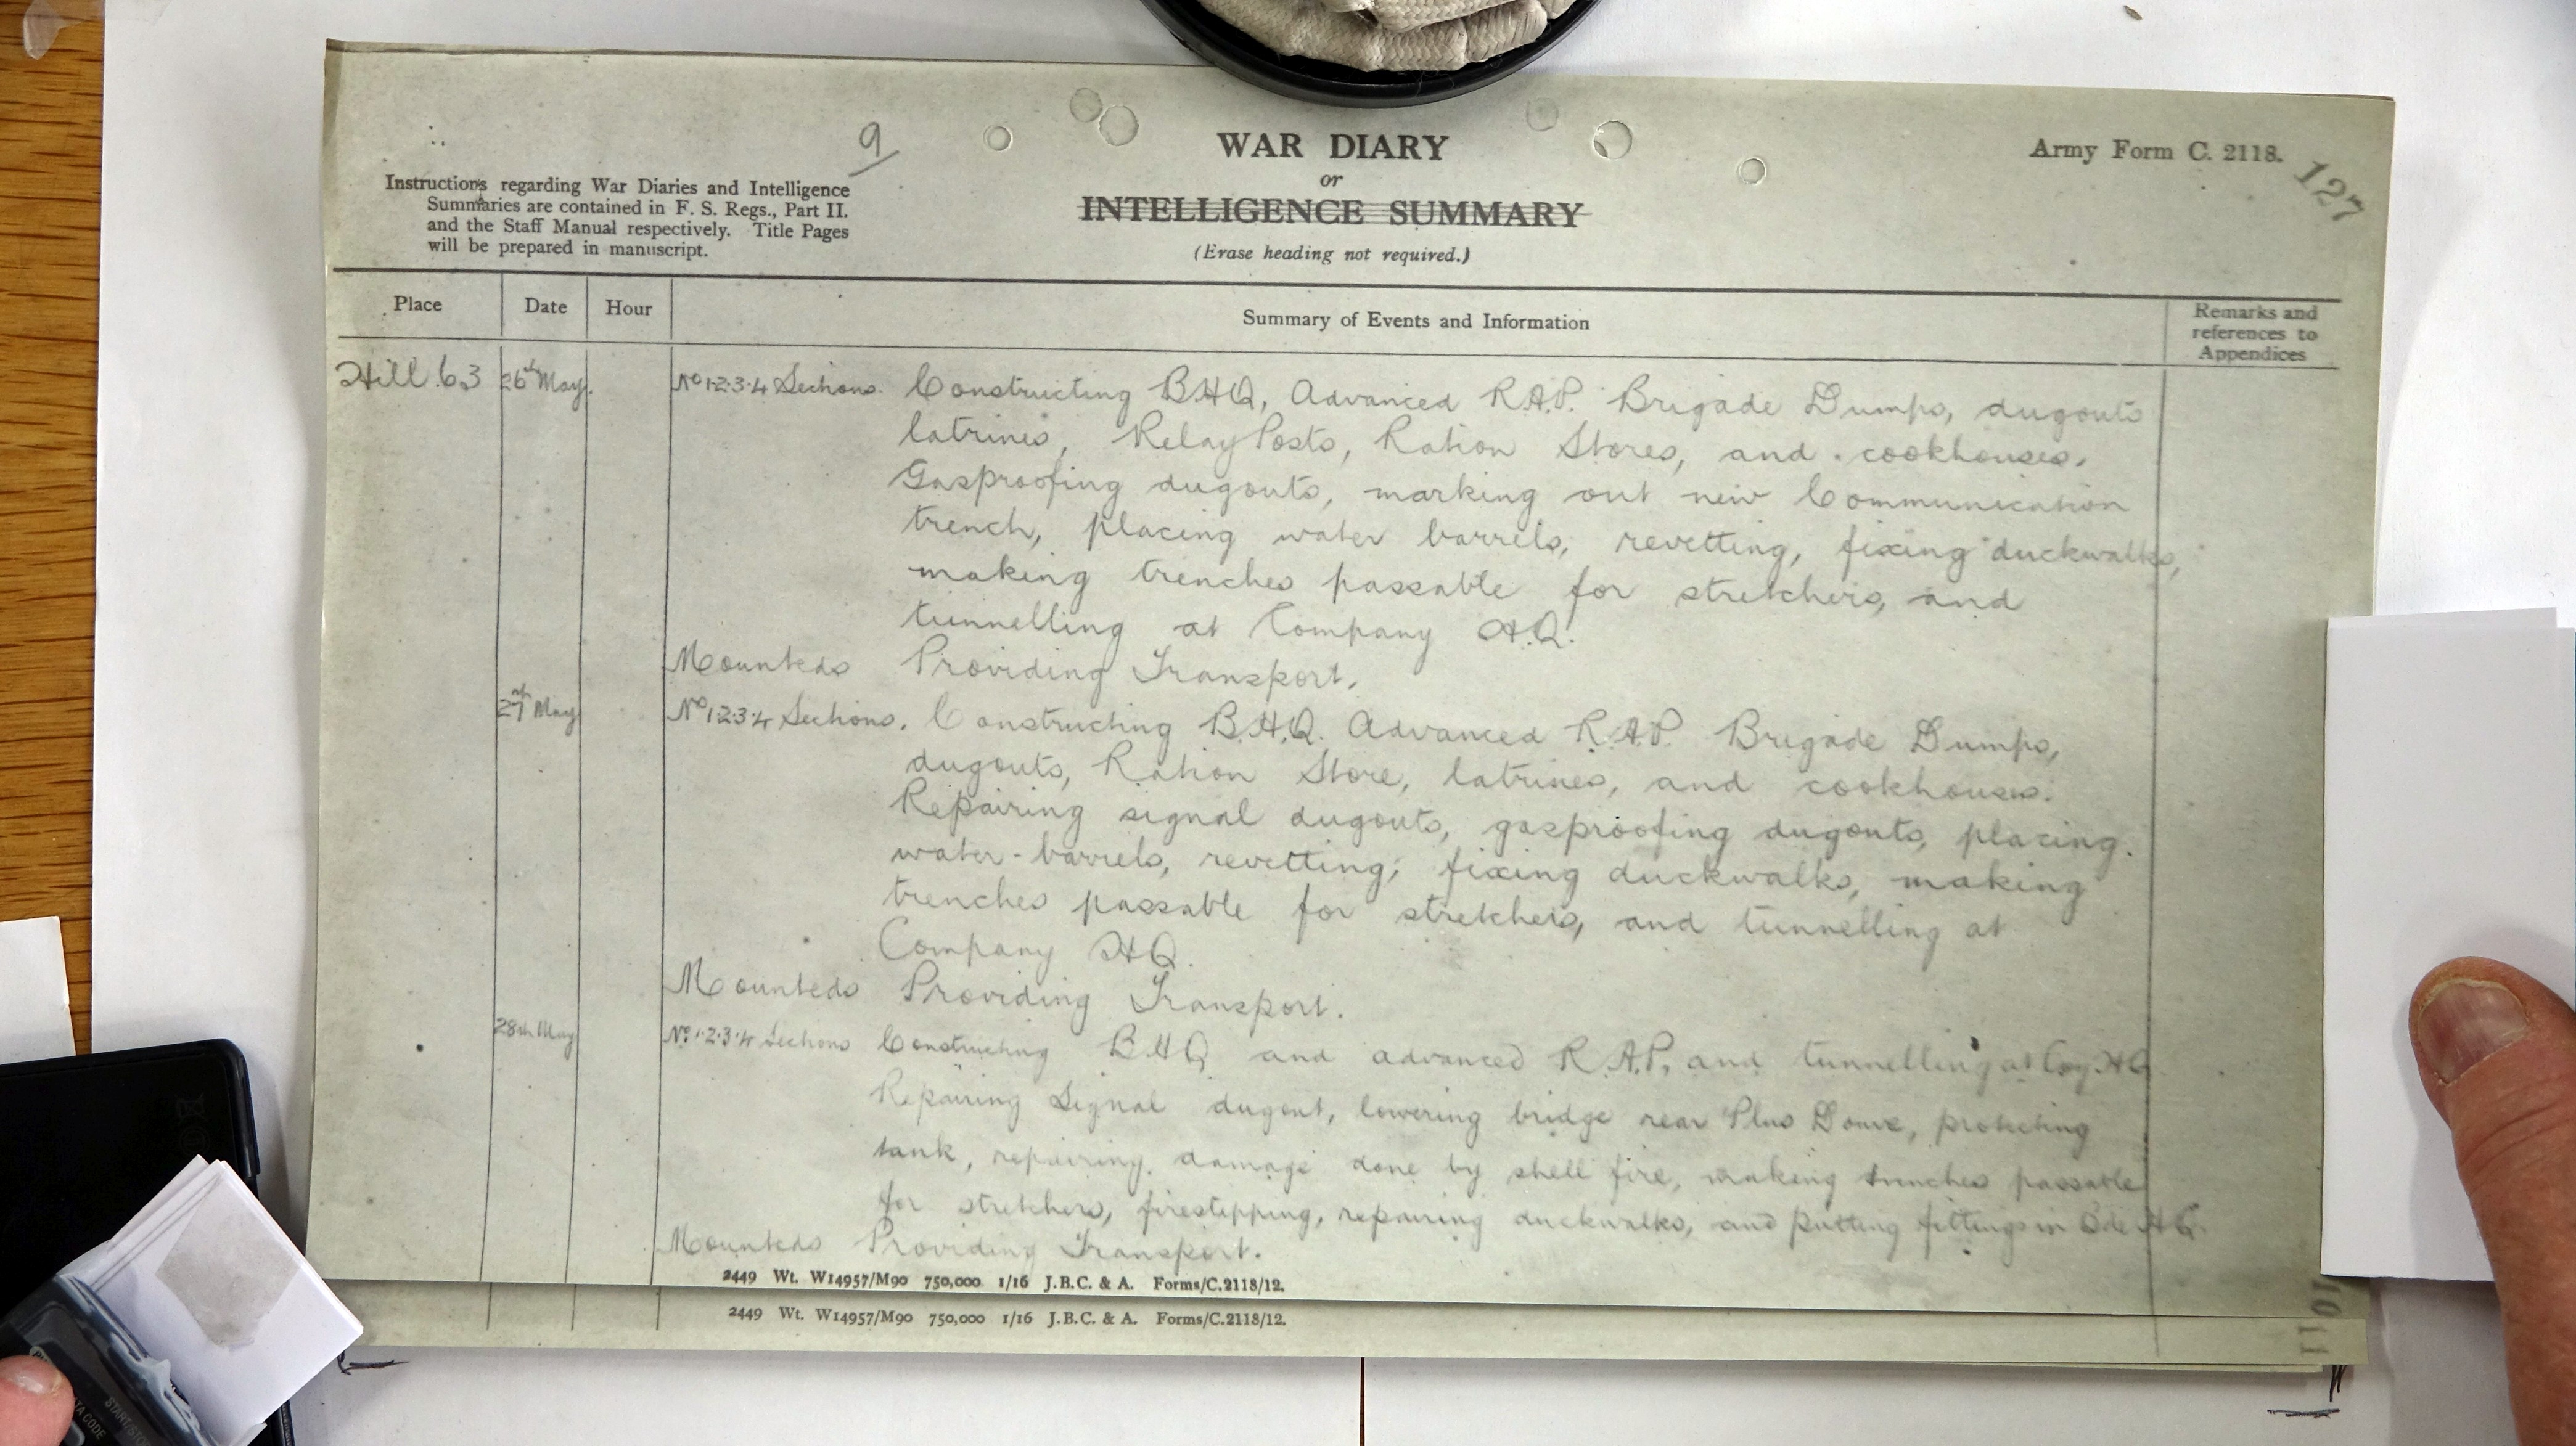 9
WAR DIARY
or
INTELLIGENCE SUMMARY
(Erase heading not required.)
Army Form C. 2118.
127
Instructions regarding War Diaries and Intelligence
Summaries are contained in F. S. Regs., Part II.
and the Staff Manual respectively. Title Pages
will be prepared in manuscript.
Place Date Hour Summary of Events and Information Remarks and references to Appendices
Hill 63 26th May. No 1.2.3.4 Sections. Constructing B.H.Q, Advanced R.A.P. Brigade Dumps, dugouts
latrines, Relay Posts, Ration Stores, and cookhouses.
Gasproofing dugouts, marking out new Communication
trench, placing water barrels, revetting, fixing duckwalks,
making trenches passable for stretchers, and
tunnelling at Company H.Q.
Mounteds Providing Transport.
27th May No 1.2.3.4 Sections. Constructing B.H.Q. Advanced R.A.P. Brigade Dumps,
dugouts, Ration Store, latrines, and cookhouses.
Repairing signal dugouts, gasproofing dugouts, placing.
water-barrels, revetting, fixing duckwalks, making
trenches passable for stretchers, and tunnelling at
Company H.Q.
Mounteds Providing Transport.
28th May No 1.2.3.4 Sections Constructing B.H.Q and advanced R.A.P. and tunnelling at Coy. H.Q
Repairing Signal dugout, lowering bridge near Plus Douve, protecting
tank, repairing damage done by shell fire, making trenches passable
for stretchers, firestepping, repairing duckwalks, and putting fittings in Bde H.Q.
Mounteds Providing Transport.
2449 Wt. W14957/M90 750,000 1/16 J.B.C. & A. Forms/C.2118/12.
2449 Wt. W14957/M90 750,000 1/16 J.B.C. & A. Forms/C.2118/12.